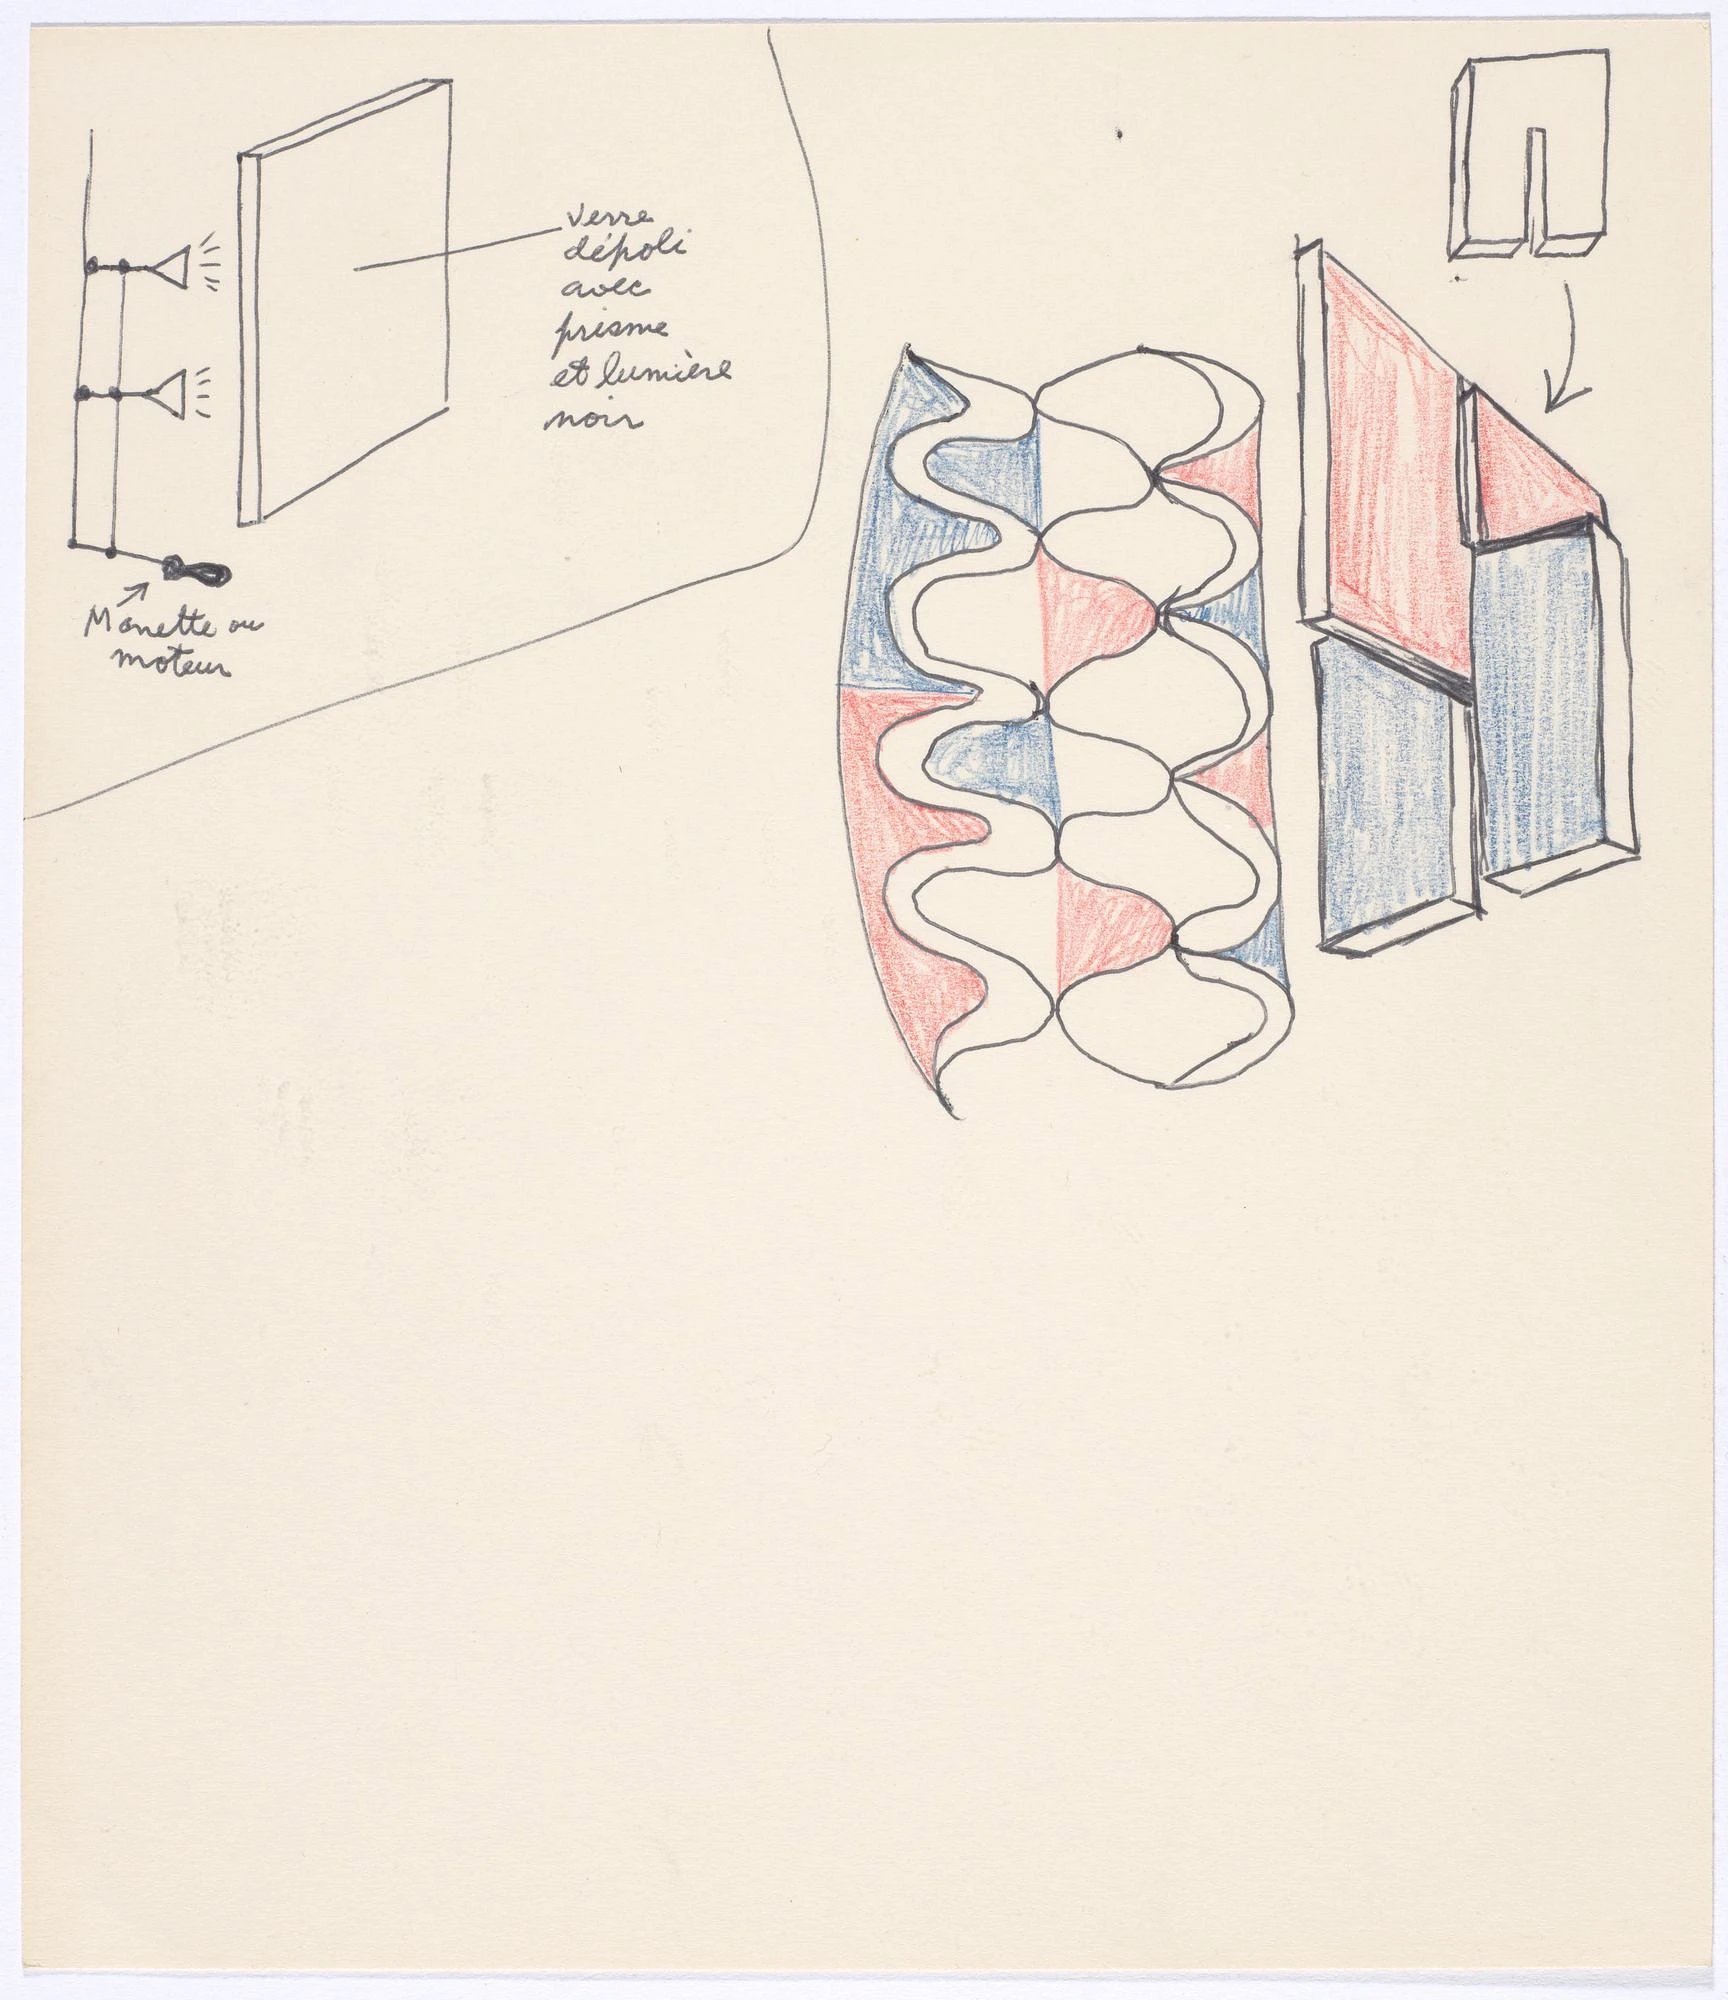 verre
dépoli
avec
prisme
et lumière
noir
Manette ou
moteur